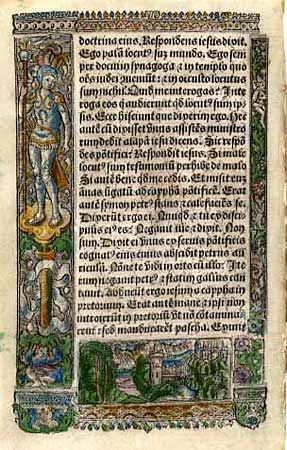 doctrina eius. Respondens iesus dixit.
Ego palā locutꝰ sum mūdo. Ego sem
per docui ī synagoga ⁊ in templo quo
oēs iudei ꝯueniūt: ⁊ in occulto locutus
sum nychil. Quid me interogas? In
teroga eos q̄ audierunt qd locutꝰ sum ip
sis. Ecce hi sciunt que dixerim ego. Hec
autē cū dixisset vnus assistēs ministro
rum dedit alapā iesu dicens. Sic respō
des pōtifici? Respondit iesus. Si male
locutꝰ sum testimoniū perhibe de malo
Si autē bene qd me cedis. Et misit eum
annas ligatū ad caypha pōtificē. Erat
autē symon petrꝰ stans ⁊ calefaciēs se.
Dixerūt ergo ei. Nunqd ⁊ tu ex disci
pulis eiꝰ es? Negauit ille ⁊ dixit. Non
sum. Dixit ei vnus ex seruis pontificis
cognatꝰ eius cuius abscidit petrus au
riculā. Nōne te vidi in orto cū illo? Ite
rum negauit petrꝰ ⁊ statim gallus can
tauit. Adducūt ergo iesum a caypha in
pretorium. Erat autē mane ⁊ ipsi non
introierunt in pretoriū vt nō cōtamina
rent sed manducarēt pascha. Exiuit